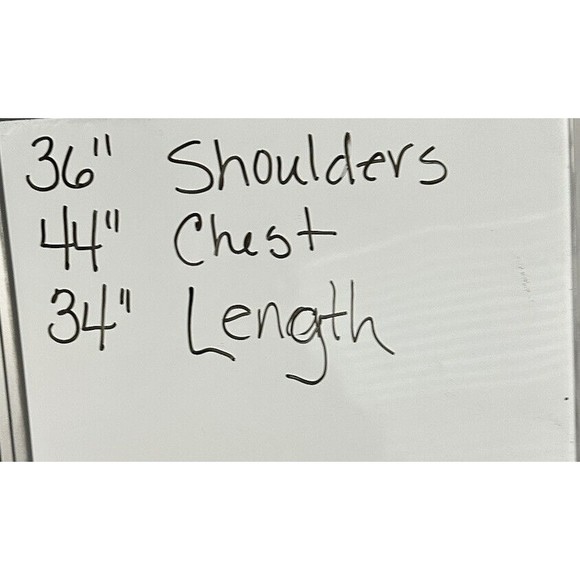 36" Shoulders
44" Chest
34" Length